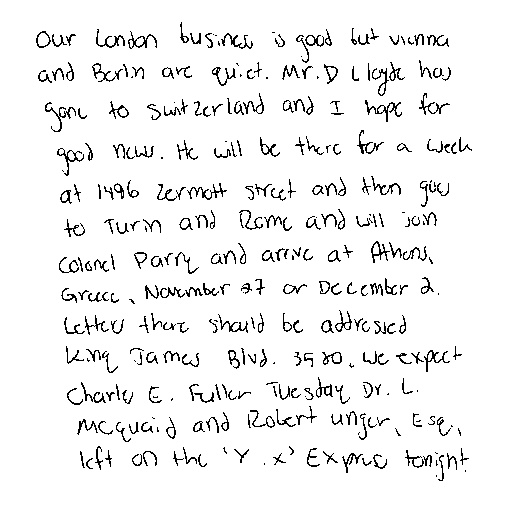 Our London business is good but vienna
and Berlin are quiet. Mr. D Lloyde has
gone to Switzerland and I hope for
good news. He will be there for a week
at 1496 Zermott street and then goes
to Turin and Rome and will join
Colonel Parry and arrive at Athens,
Greece, November 27 or December 2.
Letters there should be addressed
King James Blvd. 3580. We expect
Charles E. Fuller Tuesday Dr. L.
McQuaid and Robert unger, Esq,
left on the 'Y.X' Express tonight